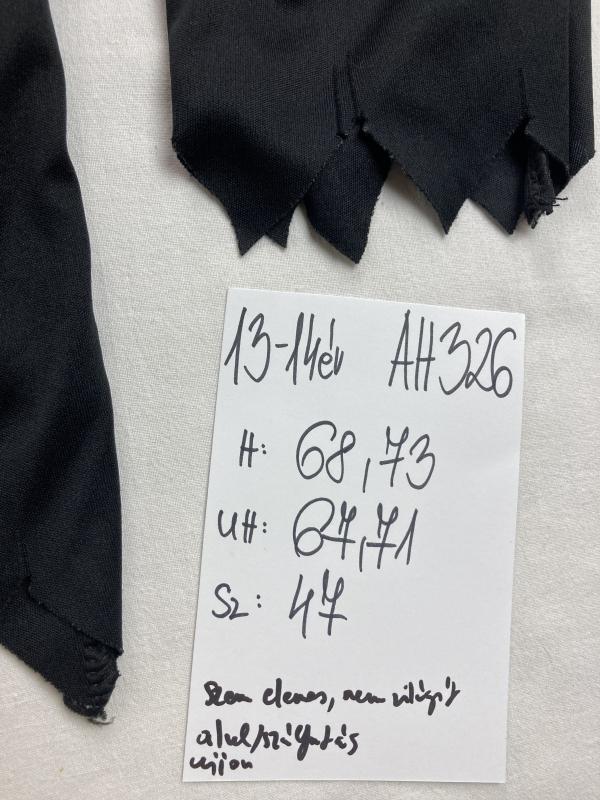 13-14év AH326
H: 68,73
UH: 67,71
Sz: 47
Szem elemes, nem világít
alul/szálfutás
ujjon